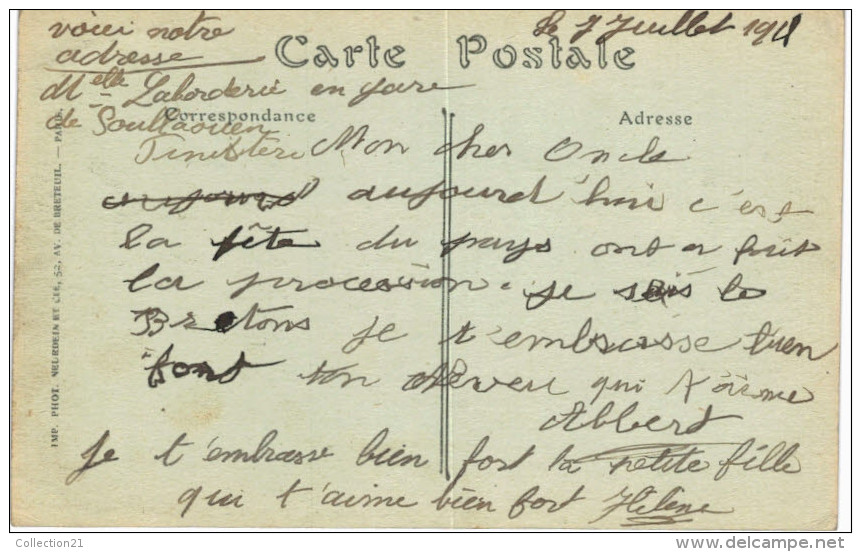 voici notre
adresse
Melle Laborderie en gare
de
Finistère
Le 7 Juillet 191
Carte Postale
Correspondance
Adresse
Mon cher Oncle
aujourd'hui c'est
la fête du pays ont a fait
la procession. je sais le
Bretons je t'embrasse bien
font ton Neveu qui t'aime
Albert
je t'embrasse bien fort ta petite fille
qui t'aime bien fort Hélène
IMP. PHOT. NEURDEIN ET CIE, 52, AV. DE BRETEUIL. — PARIS.
Collection21
http://www.delcampe.net